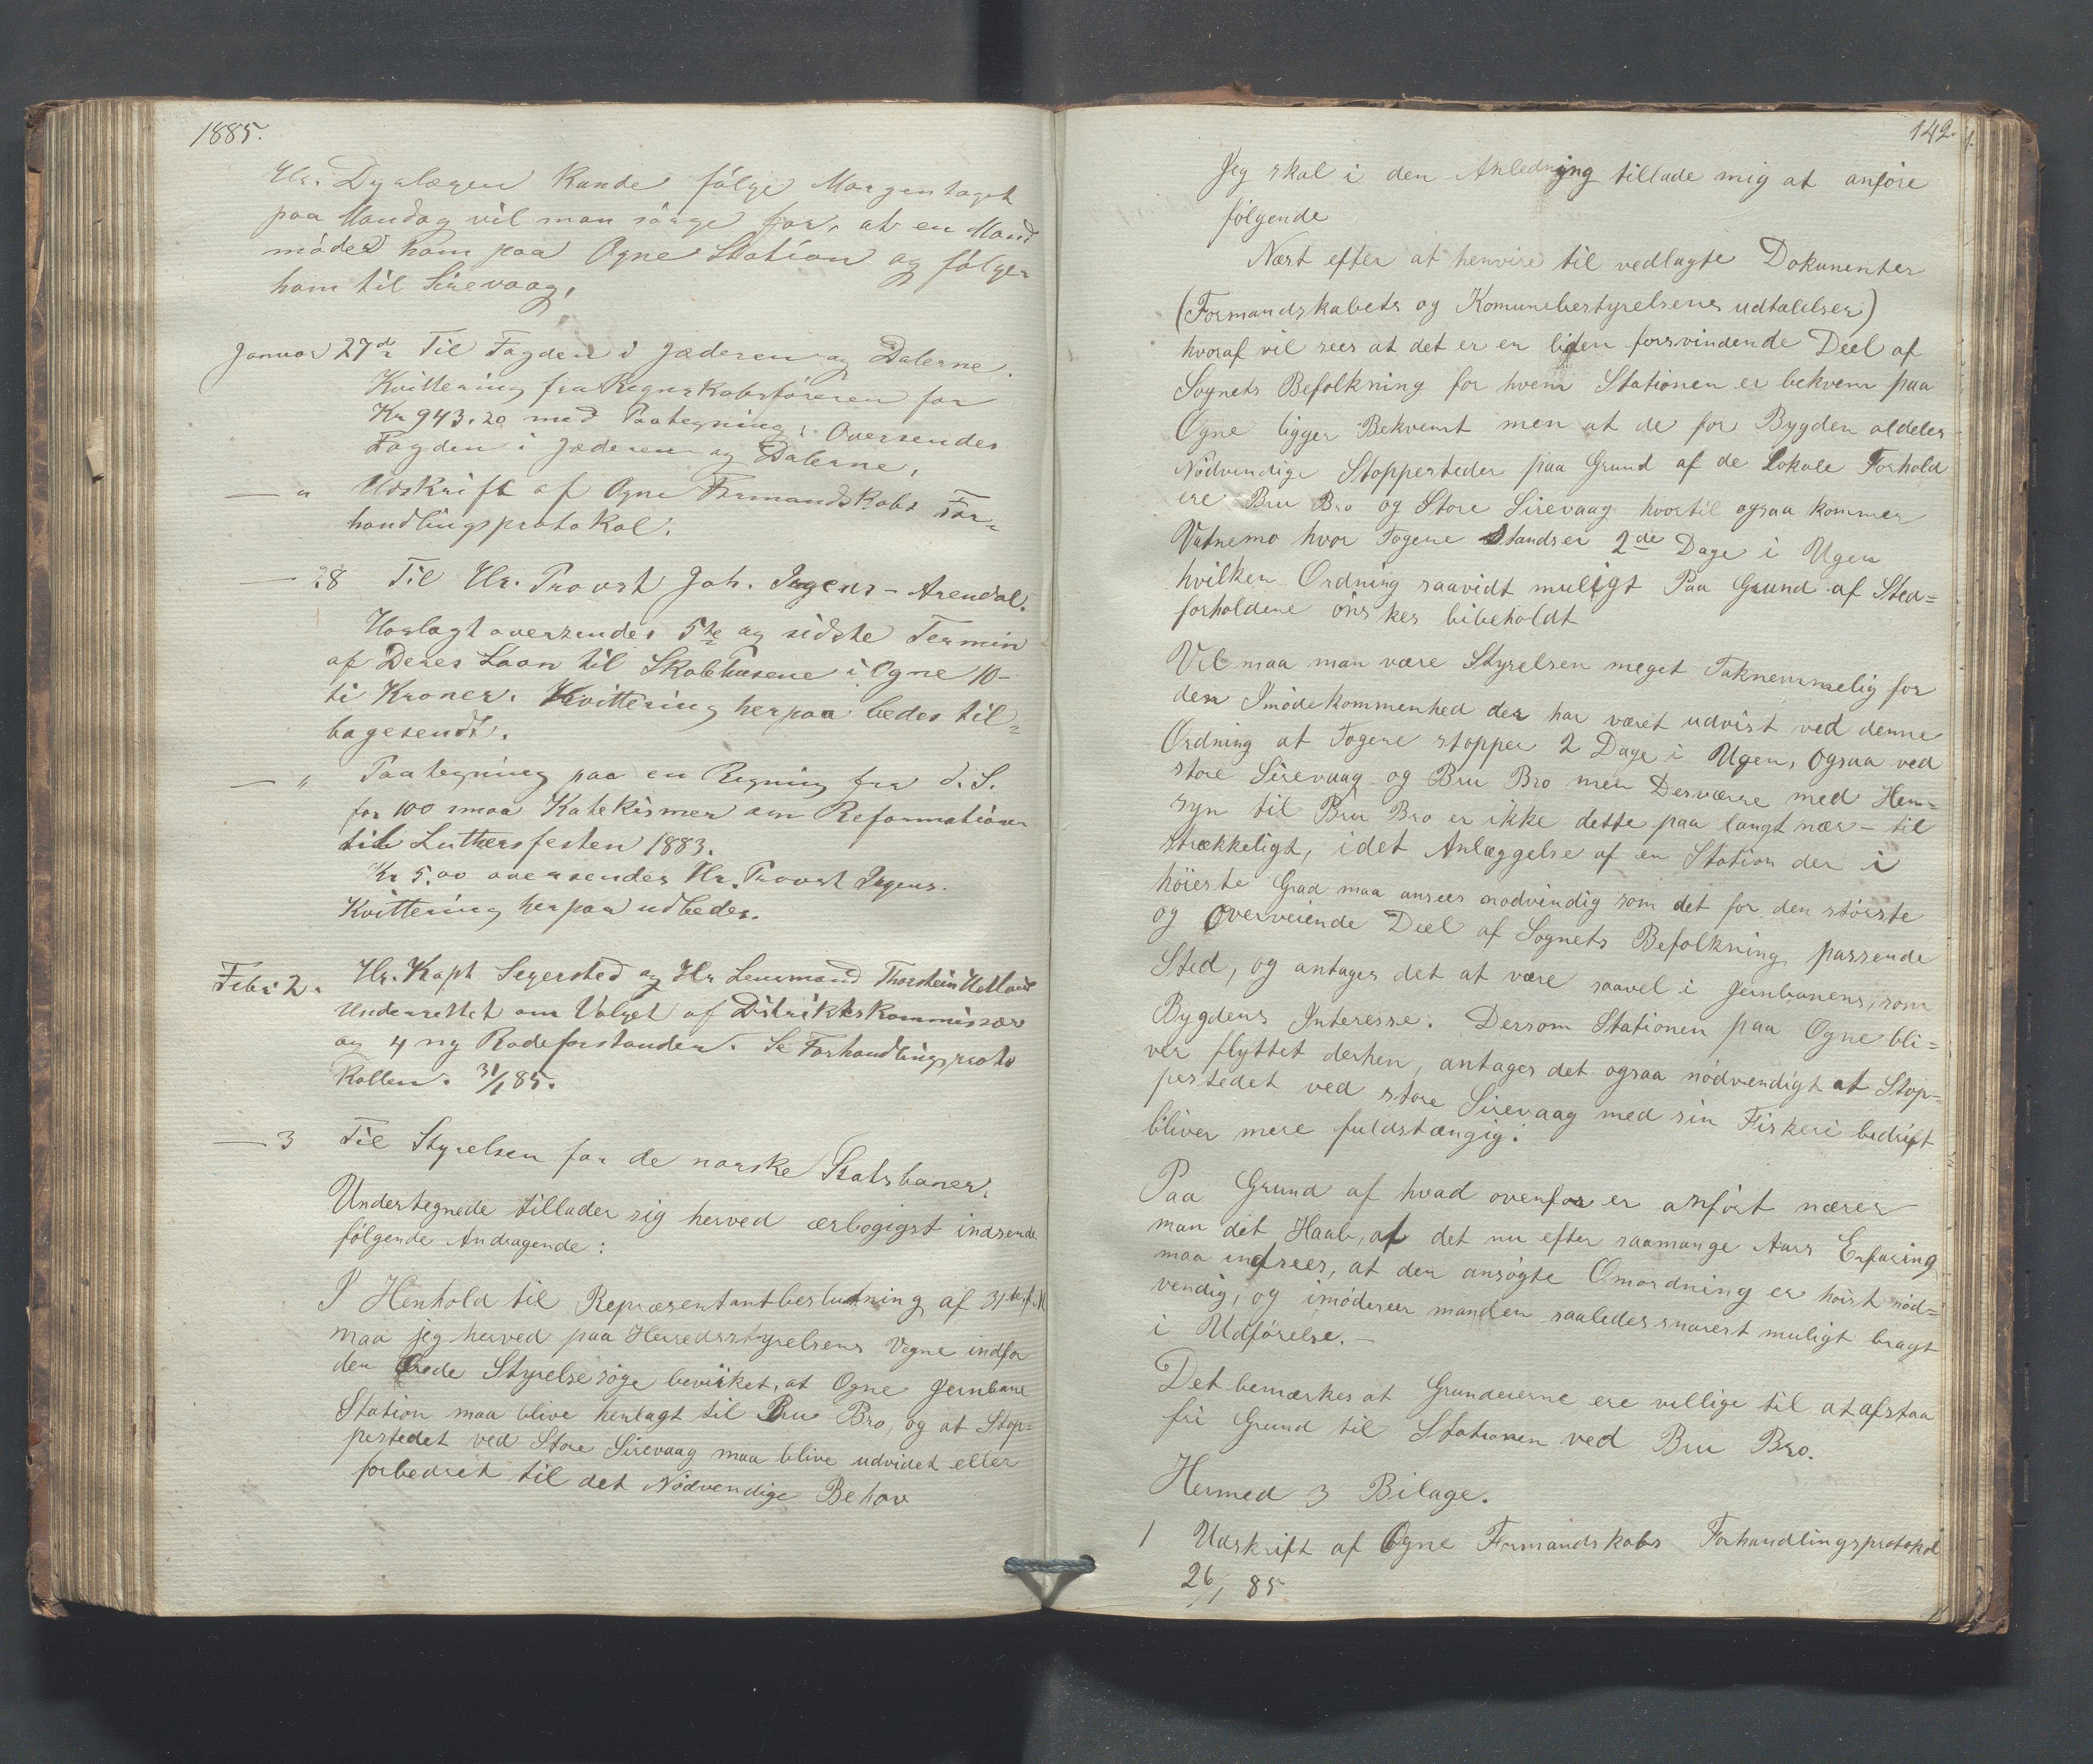 1885.
Hr. Dyrlægen Kunde følge Morgentoget
paa Mandag vil man sørge for, at en Mand
møder ham paa Ogne Station og følger
ham til Sirevaag.
Januar 27de Til Fogden i Jæderen og Dalerne.
Kvittering fra Regnskabsføreren for
Kr 943.20 med Paategning: Oversendes
Fogden i Jæderen og Dalerne.
— " Udskrift af Ogne Formandskabs For-
handlingsprotokol.
— 28 Til Hr. Provst Joh. Irgens - Arendal.
Hoslagt oversendes 5te og sidste Termin
af Deres Laan til Skolehusene i Ogne 10-
ti Kroner. Kvittering herpaa bedes til-
bagesendt.
— " Paategning paa en Regning fra d. S.
for 100 smaa Katekismer om Reformationen
til Luthersfesten 1883.
Kr 5.00 oversendes Hr. Provst Irgens.
Kvittering herpaa udbedes.
Febr 2. Hr. Kapt Segersted og Hr Lensmand Thorstein
Underrettet om Valget af Distriktskommissær
og 4 ny Rodeforstander. Se Forhandlingsproto
kollen. 31/1 85.
— 3 Til Styrelsen for de norske Statsbaner.
Undertegnede tillader sig herved ærbøgigst indsende
følgende Andragende:
I Henhold til Repræsentantbeslutning af 31te f. M
maa jeg herved paa Herredsstyrelsens Vegne indfor
den Ærede Styrelse søge bevirket, at Ogne Jernbane
Station maa blive henlagt til Bru Bro, og at Stop-
pestedet ved Store Sirevaag maa blive udvidet eller
forbedret til det Nødvendige Behov
142.
Jeg skal i den Anledning tillade mig at anføre
følgende
Næst efter at henvise til vedlagte Dokumenter
(Formandskabets og Komunebestyrelsens udtalelser)
hvoraf vil sees at det er en liden forsvindende Deel af
Sognets Befolkning for hvem Stationen er bekvem paa
Ogne ligger Bekvemt men at de for Bygden aldeles
Nødvendige Stoppesteder paa Grund af de Lokale Forhold
ere Bru Bro og Store Sirevaag hvortil ogsaa kommer
Vatnemo hvor Togene Standser 2de Dage i Ugen
hvilken Ordning saavidt muligt Paa Grund af Sted=
forholdene ønskes bibeholdt
Vel maa man være Styrelsen meget Taknemmelig for
den Imødekommenhed der har været udvist ved denne
Ordning at Togene stopper 2 Dage i Ugen, ogsaa ved
store Sirevaag og Bru Bro men Desværre med Hen=
syn til Bru Bro er ikke dette paa langt nær - til
strækkeligt, idet Anlæggelse af en Station der i
høieste Grad maa ansees nødvendig som det for den største
og Overveiende Deel af Sognets Befolkning passende
Sted, og antages det at være saavel i Jernbanens, som
Bygdens Interesse. Dersom Stationen paa Ogne bli=
ver flyttet derhen, antages det ogsaa nødvendigt at Stop=
pestedet ved store Sirevaag med sin Fiskeri bedrift
bliver mere fuldstængig.
Paa Grund af hvad ovenfor er anført nærer
man det Haab, at det nu efter saamange Aars Erfaring
maa indsees, at den ansøgte Omordning er høist nød=
vendig, og imødeseer manden saaledes snarest muligt bragt
i Udførelse. —
Det bemærkes at Grundeierne ere villige til at afstaa
fri Grund til Stationen ved Bru Bro.
Hermed 3 Bilage.
1 Udskrift af Ogne Formandskabs Forhandlingsprotokol
26/1 85